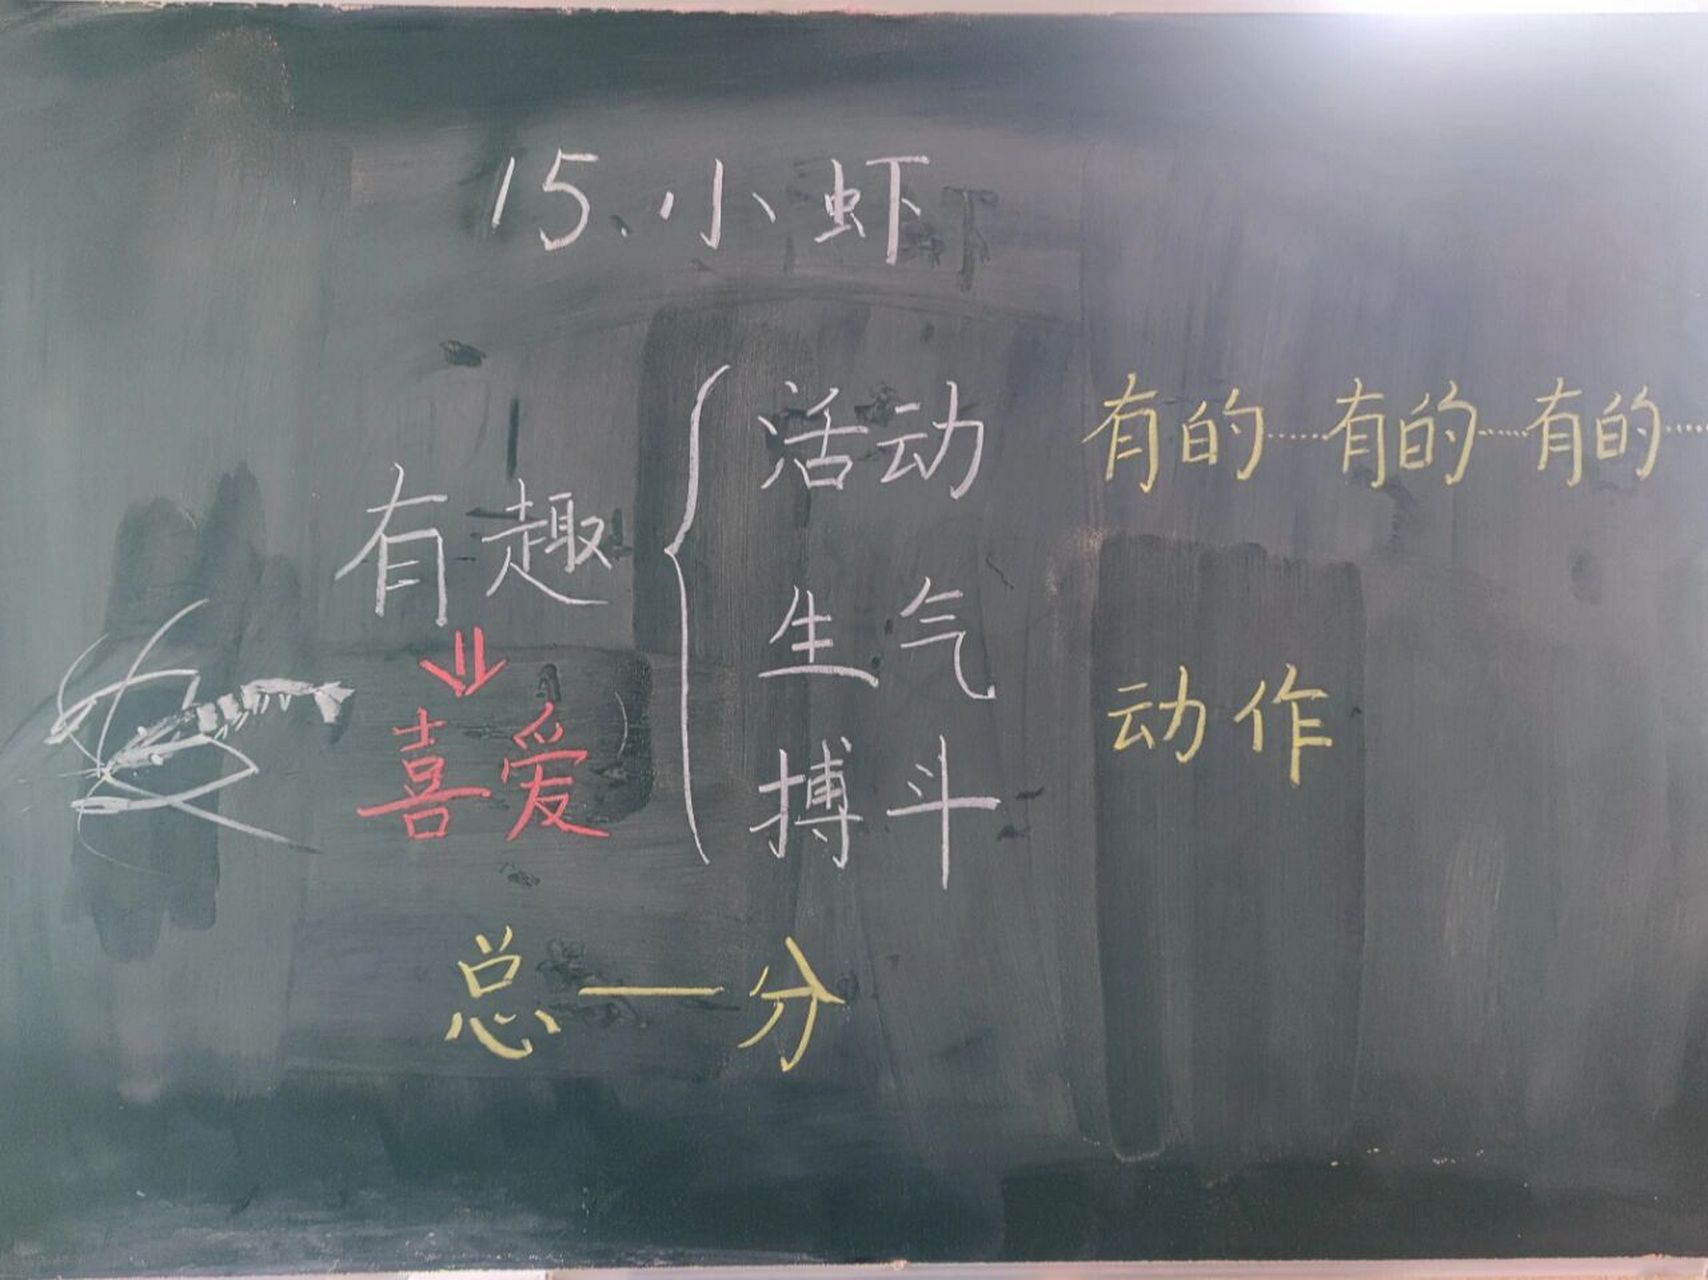 15、小虾
活动 有的……有的……有的……
有趣
生气
动作
喜爱
搏斗
总—分